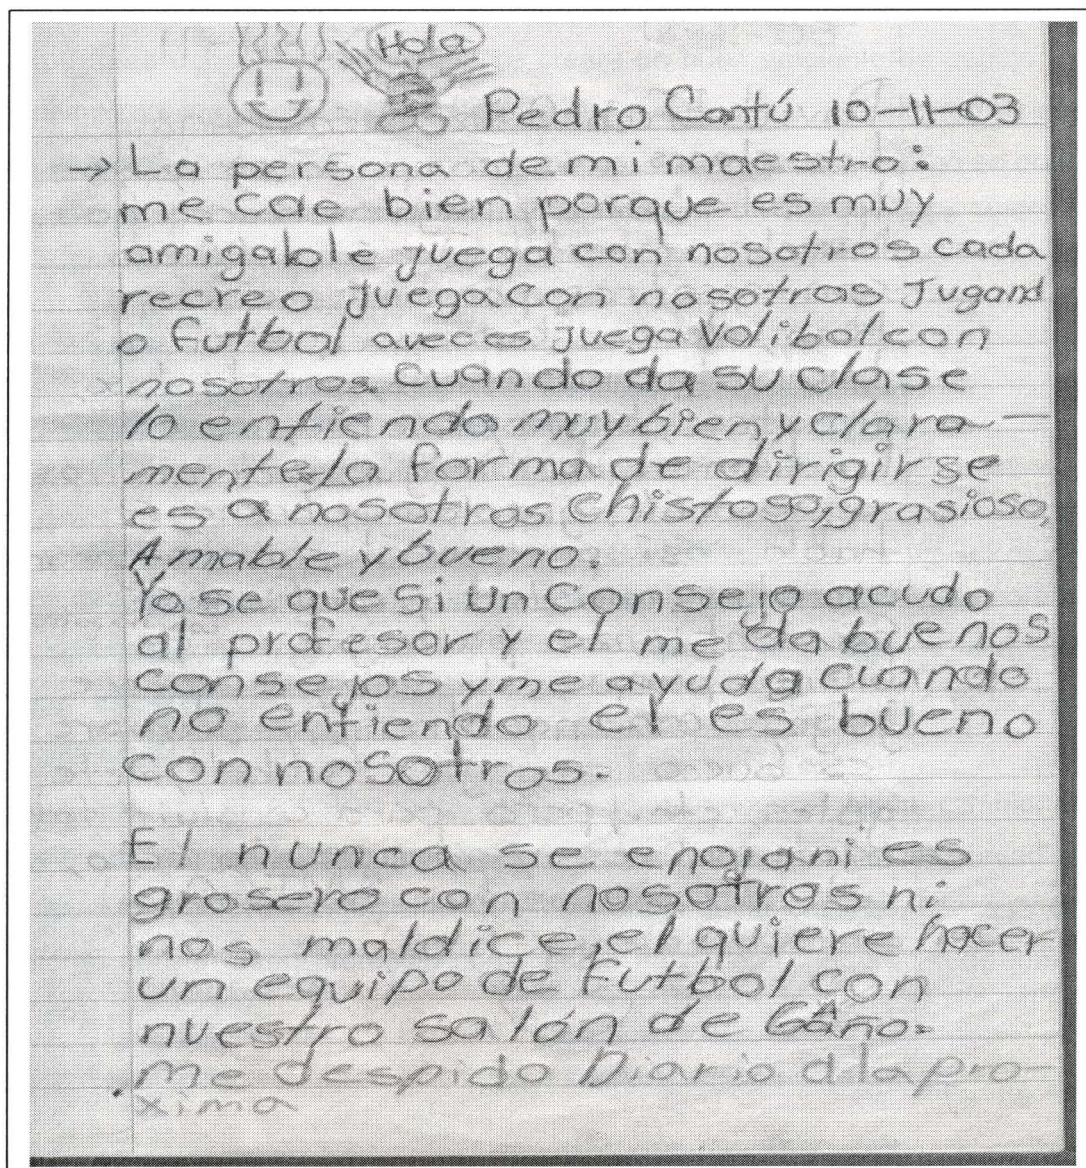 Hola
Pedro Cantú 10-11-03
→ La persona de mi maestro:
me cae bien porque es muy
amigable juega con nosotros cada
recreo juega con nosotros Jugand
o Futbol aveces juega Volibol con
nosotros. Cuando da su clase
lo entiendo muy bien y clara-
mente la forma de dirigir se
es a nosotros Chistoso, grasioso,
Amable y bueno.
Yo se que si un Consejo acudo
al profesor y el me da buenos
consejos y me ayuda cuando
no entiendo el es bueno
con nosotros.
El nunca se enoja ni es
grosero con nosotros ni
nos maldice, el quiere hacer
un equipo de Futbol con
nuestro salón de 6A año.
Me despido Diario a la pro-
xima